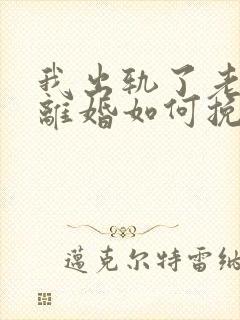 我出轨了老
離婚如何挽
邁克尔特雷纳